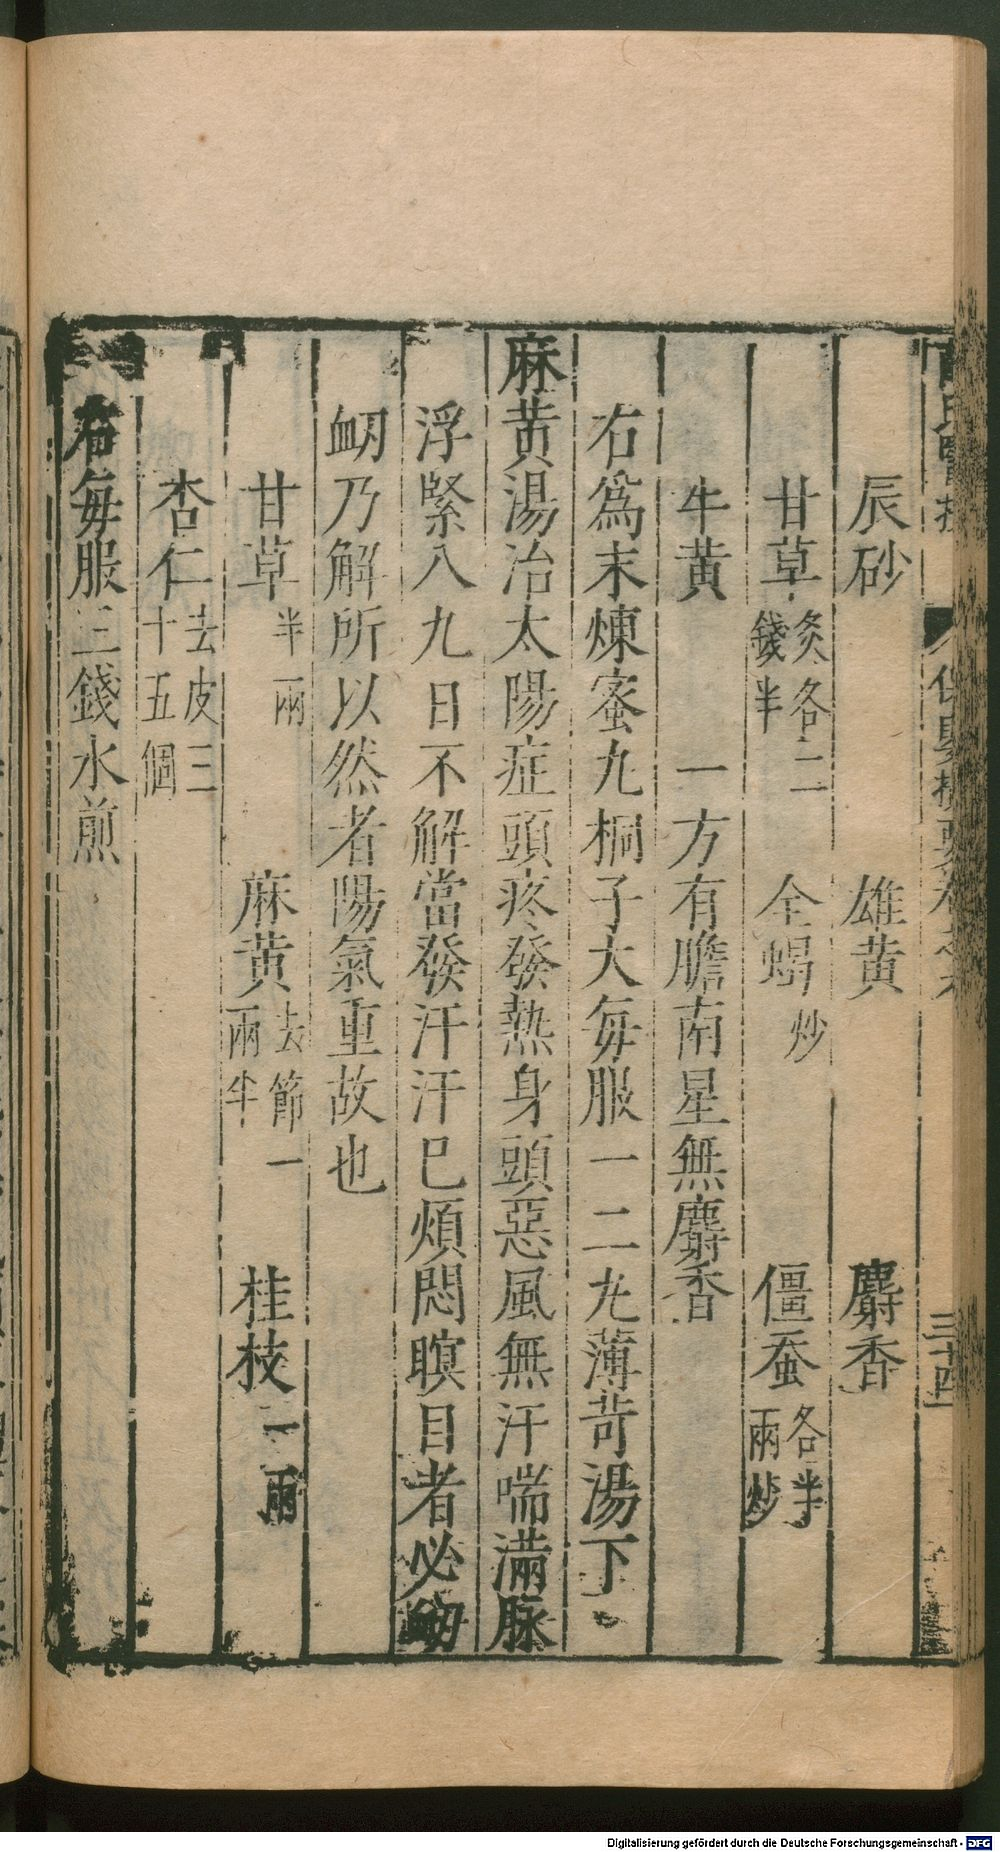 辰砂　雄黄　麝香
甘草炙各二錢半　全蝎炒　僵蚕各半兩炒
牛黄　一方有膽南星無麝香
右爲末煉蜜丸桐子大每服一二丸薄荷湯下
麻黄湯治太陽症頭疼發熱身頭惡風無汗喘滿脉
浮緊八九日不解當發汗汗巳煩悶瞑目者必衂
衂乃解所以然者陽氣重故也
甘草半兩　麻黄去節一兩半　桂枝二兩
杏仁去皮三十五個
右每服三錢水煎
三十四
Digitalisierung gefördert durch die Deutsche Forschungsgemeinschaft - DFG